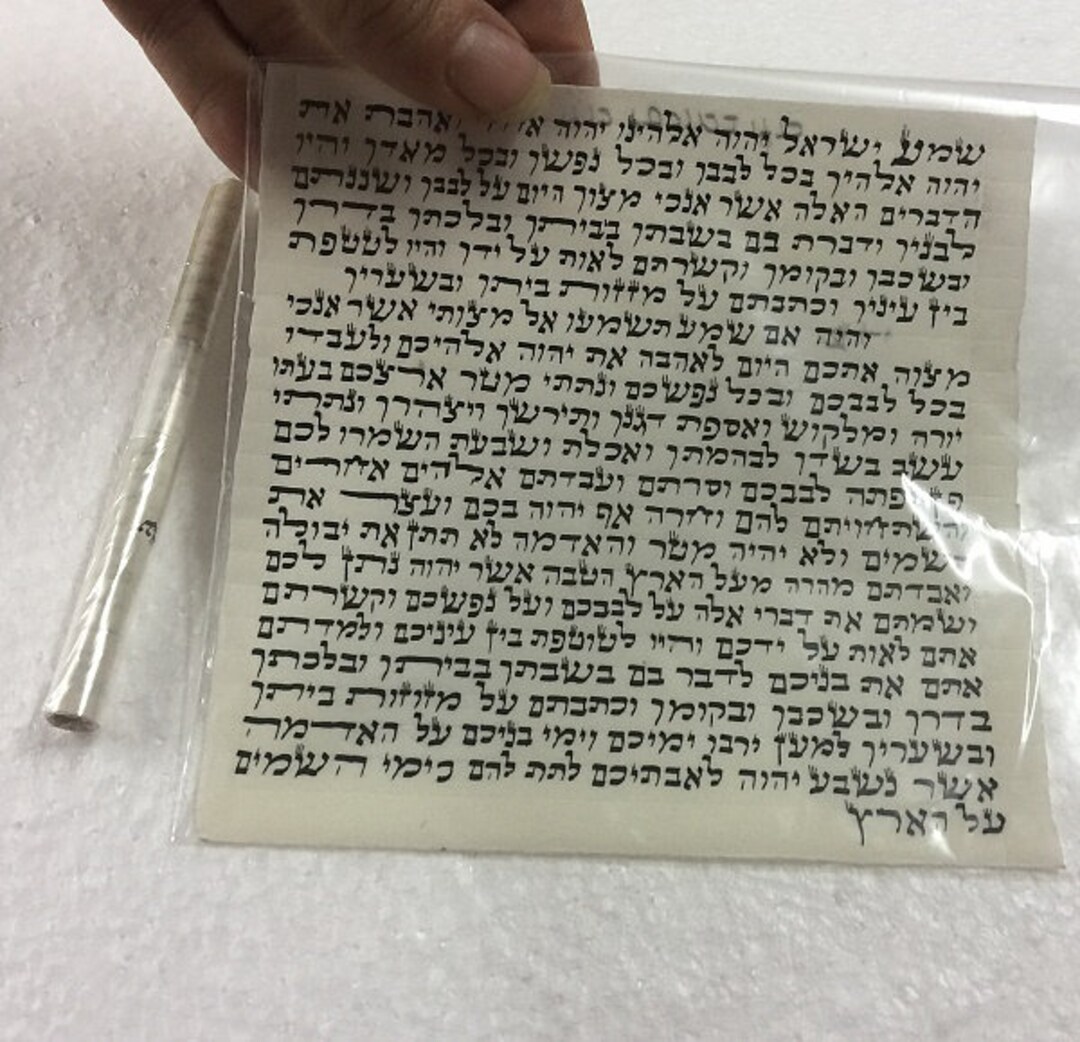 שמע ישראל יהוה אלהינו יהוה ואהבת את
יהוה אלהיך בכל לבבך ובכל נפשך ובכל מאדך והיו
הדברים האלה אשר אנכי מצוך היום על לבבך ושננתם
לבניך ודברת בם בשבתך בביתך ובלכתך בדרך
ובשכבך ובקומך וקשרתם לאות על ידך והיו לטטפת
בין עיניך וכתבתם על מזזות ביתך ובשעריך
והיה אם שמע תשמעו אל מצותי אשר אנכי
מצוה אתכם היום לאהבה את יהוה אלהיכם ולעבדו
בכל לבבכם ובכל נפשכם ונתתי מטר ארצכם בעתו
יורה ומלקוש ואספת דגנך ותירשך ויצהרך ונתתי
עשב בשדך לבהמתך ואכלת ושבעת השמרו לכם
פן יפתה לבבכם וסרתם ועבדתם אלהים אחרים
והשתחויתם להם וחרה אף יהוה בכם ועצר את
השמים ולא יהיה מטר והאדמה לא תתן את יבולה
ואבדתם מהרה מעל הארץ הטבה אשר יהוה נתן לכם
ושמתם את דברי אלה על לבבכם ועל נפשכם וקשרתם
אתם לאות על ידכם והיו לטוטפת בין עיניכם ולמדתם
אתם את בניכם לדבר בם בשבתך בביתך ובלכתך
בדרך ובשכבך ובקומך וכתבתם על מזוזות ביתך
ובשעריך למען ירבו ימיכם וימי בניכם על האדמה
אשר נשבע יהוה לאבתיכם לתת להם כימי השמים
על הארץ